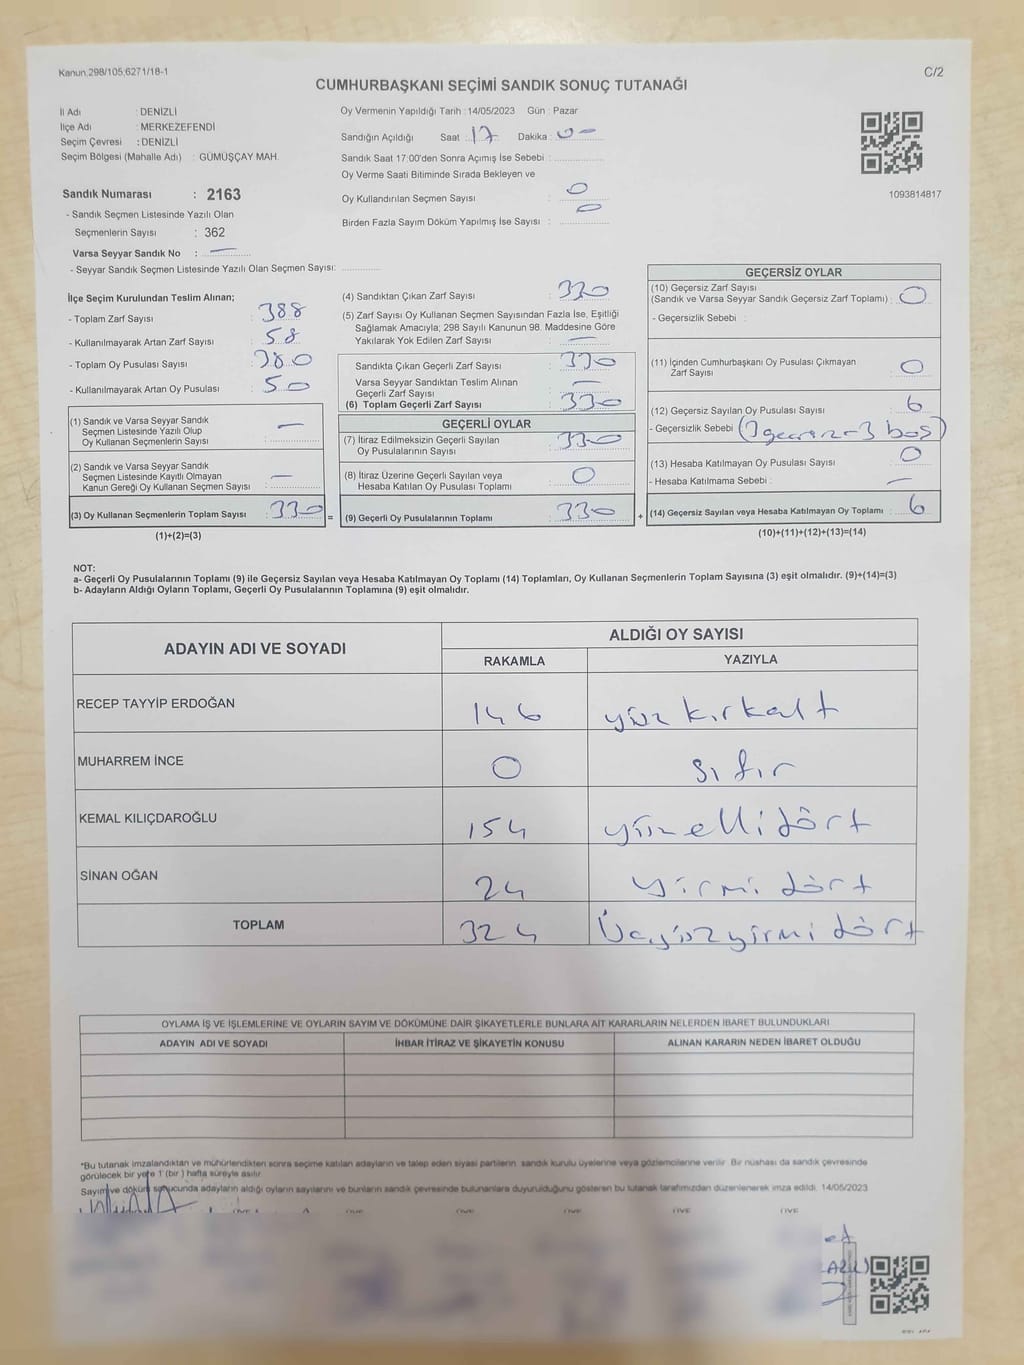 Kanun,298/105,6271/18-1
C/2
CUMHURBAŞKANI SEÇİMİ SANDIK SONUÇ TUTANAĞI
İl Adı : DENİZLİ
İlçe Adı : MERKEZEFENDİ
Seçim Çevresi : DENİZLİ
Seçim Bölgesi (Mahalle Adı) : GÜMÜŞÇAY MAH.
Oy Vermenin Yapıldığı Tarih : 14/05/2023 Gün : Pazar
Sandığın Açıldığı Saat : 17 Dakika : 00
Sandık Saat 17:00'den Sonra Açımış İse Sebebi :
Oy Verme Saati Bitiminde Sırada Bekleyen ve
Oy Kullandırılan Seçmen Sayısı : 0
Birden Fazla Sayım Döküm Yapılmış İse Sayısı : 0
1093814817
Sandık Numarası : 2163
- Sandık Seçmen Listesinde Yazılı Olan
Seçmenlerin Sayısı : 362
Varsa Seyyar Sandık No : —
- Seyyar Sandık Seçmen Listesinde Yazılı Olan Seçmen Sayısı:
İlçe Seçim Kurulundan Teslim Alınan;
- Toplam Zarf Sayısı : 388
- Kullanılmayarak Artan Zarf Sayısı : 58
- Toplam Oy Pusulası Sayısı : 380
- Kullanılmayarak Artan Oy Pusulası : 50
(1) Sandık ve Varsa Seyyar Sandık
Seçmen Listesinde Yazılı Olup
Oy Kullanan Seçmenlerin Sayısı : —
(2) Sandık ve Varsa Seyyar Sandık
Seçmen Listesinde Kayıtlı Olmayan
Kanun Gereği Oy Kullanan Seçmen Sayısı : —
(3) Oy Kullanan Seçmenlerin Toplam Sayısı : 330 =
(1)+(2)=(3)
(4) Sandıktan Çıkan Zarf Sayısı : 330
(5) Zarf Sayısı Oy Kullanan Seçmen Sayısından Fazla İse, Eşitliği
Sağlamak Amacıyla; 298 Sayılı Kanunun 98. Maddesine Göre
Yakılarak Yok Edilen Zarf Sayısı : —
Sandıkta Çıkan Geçerli Zarf Sayısı : 330
Varsa Seyyar Sandıktan Teslim Alınan
Geçerli Zarf Sayısı : —
(6) Toplam Geçerli Zarf Sayısı : 330
GEÇERLİ OYLAR
(7) İtiraz Edilmeksizin Geçerli Sayılan
Oy Pusulalarının Sayısı : 330
(8) İtiraz Üzerine Geçerli Sayılan veya
Hesaba Katılan Oy Pusulası Toplamı : 0
(9) Geçerli Oy Pusulalarının Toplamı : 330 +
GEÇERSİZ OYLAR
(10) Geçersiz Zarf Sayısı
(Sandık ve Varsa Seyyar Sandık Geçersiz Zarf Toplamı) : 0
- Geçersizlik Sebebi :
(11) İçinden Cumhurbaşkanı Oy Pusulası Çıkmayan
Zarf Sayısı : 0
(12) Geçersiz Sayılan Oy Pusulası Sayısı : 6
- Geçersizlik Sebebi (3 geçersiz-3 boş)
(13) Hesaba Katılmayan Oy Pusulası Sayısı : 0
- Hesaba Katılmama Sebebi : —
(14) Geçersiz Sayılan veya Hesaba Katılmayan Oy Toplamı : 6
(10)+(11)+(12)+(13)=(14)
NOT:
a- Geçerli Oy Pusulalarının Toplamı (9) ile Geçersiz Sayılan veya Hesaba Katılmayan Oy Toplamı (14) Toplamları, Oy Kullanan Seçmenlerin Toplam Sayısına (3) eşit olmalıdır. (9)+(14)=(3)
b- Adayların Aldığı Oyların Toplamı, Geçerli Oy Pusulalarının Toplamına (9) eşit olmalıdır.
ADAYIN ADI VE SOYADI
ALDIĞI OY SAYISI
RAKAMLA YAZIYLA
RECEP TAYYİP ERDOĞAN 146 yüz kırkaltı
MUHARREM İNCE 0 sıfır
KEMAL KILIÇDAROĞLU 154 yüzellidört
SİNAN OĞAN 24 yirmi dört
TOPLAM 324 Üçyüzyirmi dört
OYLAMA İŞ VE İŞLEMLERİNE VE OYLARIN SAYIM VE DÖKÜMÜNE DAİR ŞİKAYETLERLE BUNLARA AİT KARARLARIN NELERDEN İBARET BULUNDUKLARI
ADAYIN ADI VE SOYADI İHBAR İTİRAZ VE ŞİKAYETİN KONUSU ALINAN KARARIN NEDEN İBARET OLDUĞU
*Bu tutanak imzalandıktan ve mühürlendikten sonra seçime katılan adayların ve talep eden siyasi partilerin sandık kurulu üyelerine veya gözlemcilerine verilir. Bir nüshası da sandık çevresinde
görülecek bir yere 1 (bir ) hafta süreyle asılır.
Sayım ve döküm sonucunda adayların aldığı oyların sayılarını ve bunların sandık çevresinde bulunanlara duyurulduğunu gösteren bu tutanak tarafımızdan düzenlenerek imza edildi. 14/05/2023